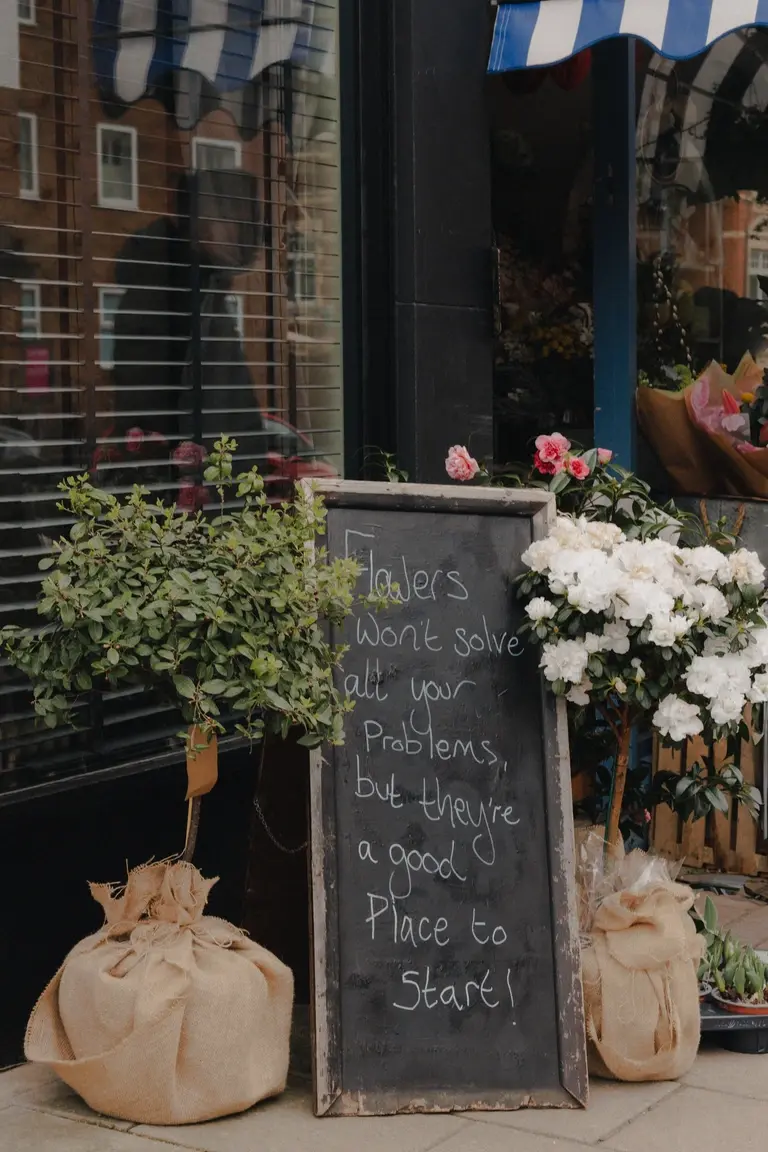 Flowers
Won't solve
all your
Problems,
but they're
a good
Place to
Start!